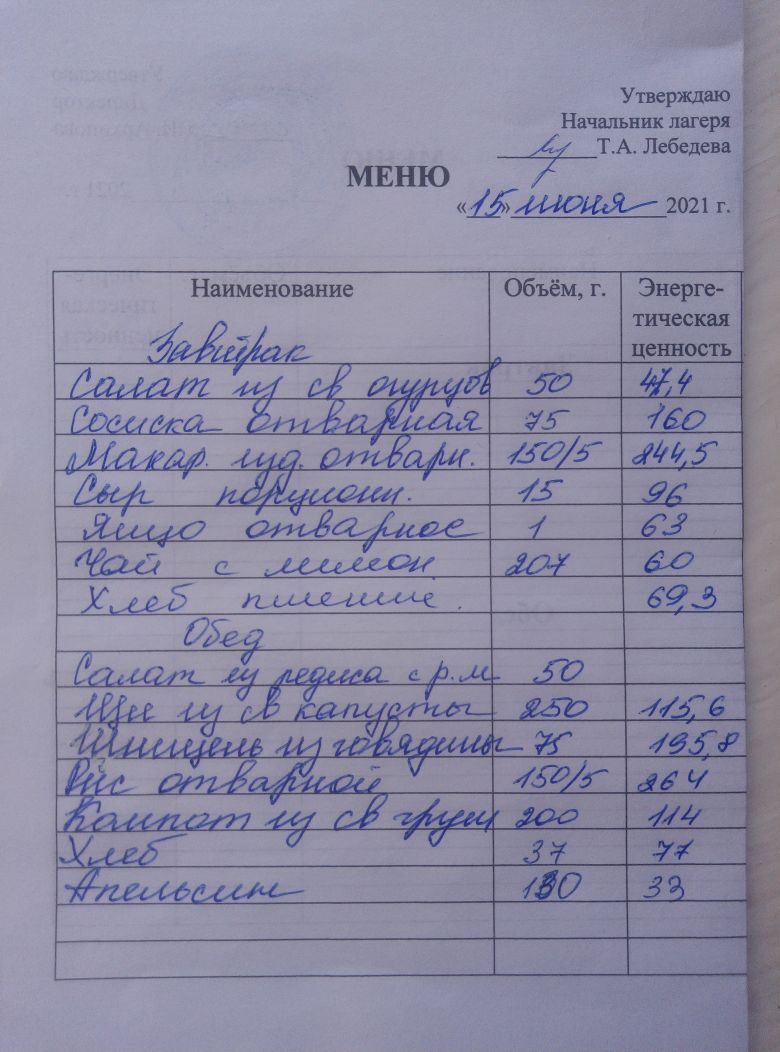 Утверждаю
Начальник лагеря
Т.А. Лебедева
МЕНЮ
«15» июня 2021 г.
Наименование Объём, г. Энерге-
тическая
ценность
Завтрак
Салат из св огурцов 50 47,4
Сосиска отварная 75 160
Макар. изд. отварн. 150/5 244,5
Сыр порционн. 15 96
Яйцо отварное 1 63
Чай с лимон 207 60
Хлеб пшенич. 69,3
Обед
Салат из редиса с р.м 50
Щи из св капусты 250 115,6
Шницель из говядины 75 195,8
Рис отварной 150/5 264
Компот из св груш 200 114
Хлеб 37 77
Апельсин 130 33